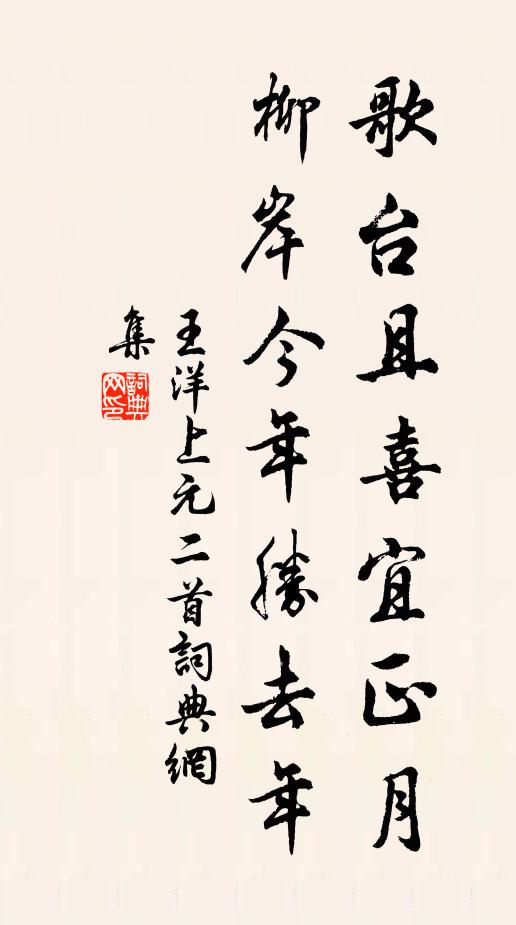 歌台且喜宜正月
柳岸今年勝去年
王洋上元二首詞典網
集
詞典
网印